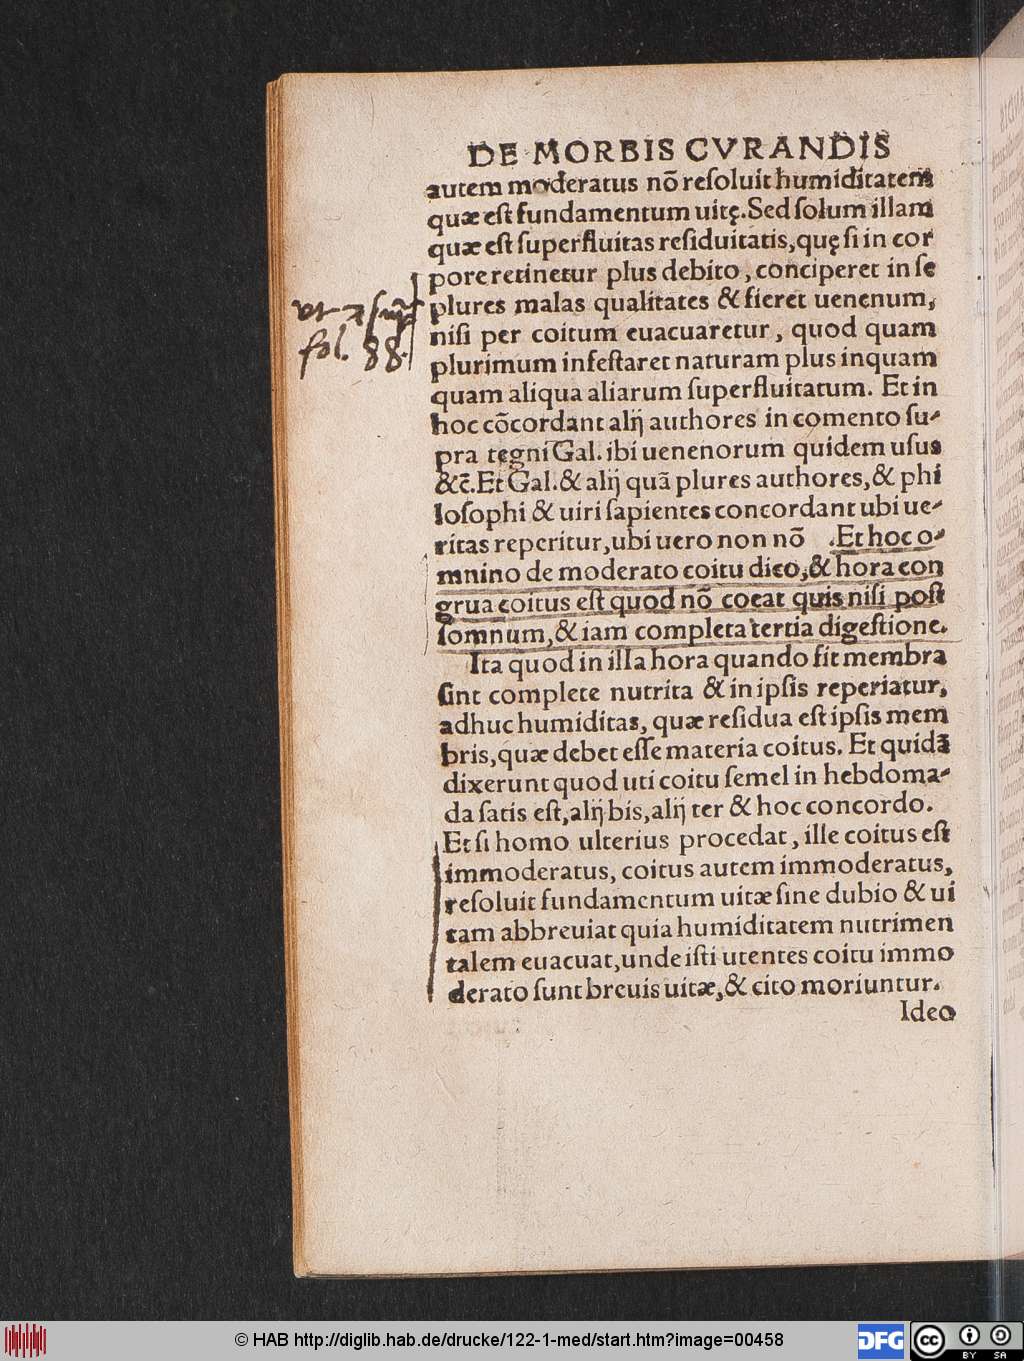 DE MORBIS CVRANDIS
autem moderatus nõ reſoluit humiditatem
quæ eſt fundamentum uitę. Sed ſolum illam
quæ eſt ſuperfluitas reſiduitatis, quę ſi in cor
pore retinetur plus debito, conciperet in ſe
plures malas qualitates & fieret uenenum,
niſi per coitum euacuaretur, quod quam
plurimum infeſtaret naturam plus inquam
quam aliqua aliarum ſuperfluitatum. Et in
hoc cõcordant alij authores in comento ſu-
pra tegni Gal. ibi uenenorum quidem uſus
&c̃. Et Gal. & alij quã plures authores, & phi
loſophi & uiri ſapientes concordant ubi ue-
ritas reperitur, ubi uero non nõ. Et hoc o-
mnino de moderato coitu dico, & hora con
grua coitus eſt quod nõ coeat quis niſi poſt
ſomnum, & iam completa tertia digeſtione.
Ita quod in illa hora quando fit membra
ſint complete nutrita & in ipſis reperiatur,
adhuc humiditas, quæ reſidua eſt ipſis mem
bris, quæ debet eſſe materia coitus. Et quidã
dixerunt quod uti coitu ſemel in hebdoma-
da ſatis eſt, alij bis, alij ter & hoc concordo.
Et ſi homo ulterius procedat, ille coitus eſt
immoderatus, coitus autem immoderatus,
reſoluit fundamentum uitæ ſine dubio & ui
tam abbreuiat quia humiditatem nutrimen
talem euacuat, unde iſti utentes coitu immo
derato ſunt breuis uitæ, & cito moriuntur.
Ideo
fol. 88.
© HAB http://diglib.hab.de/drucke/122-1-med/start.htm?image=00458
DFG
cc
BY SA